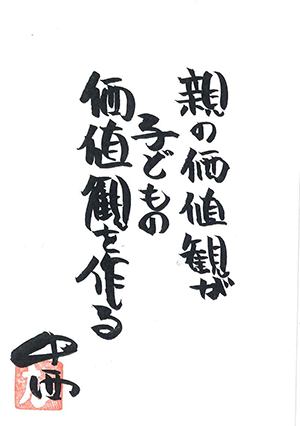 親の価値観が
子どもの
価値観を作る
中西